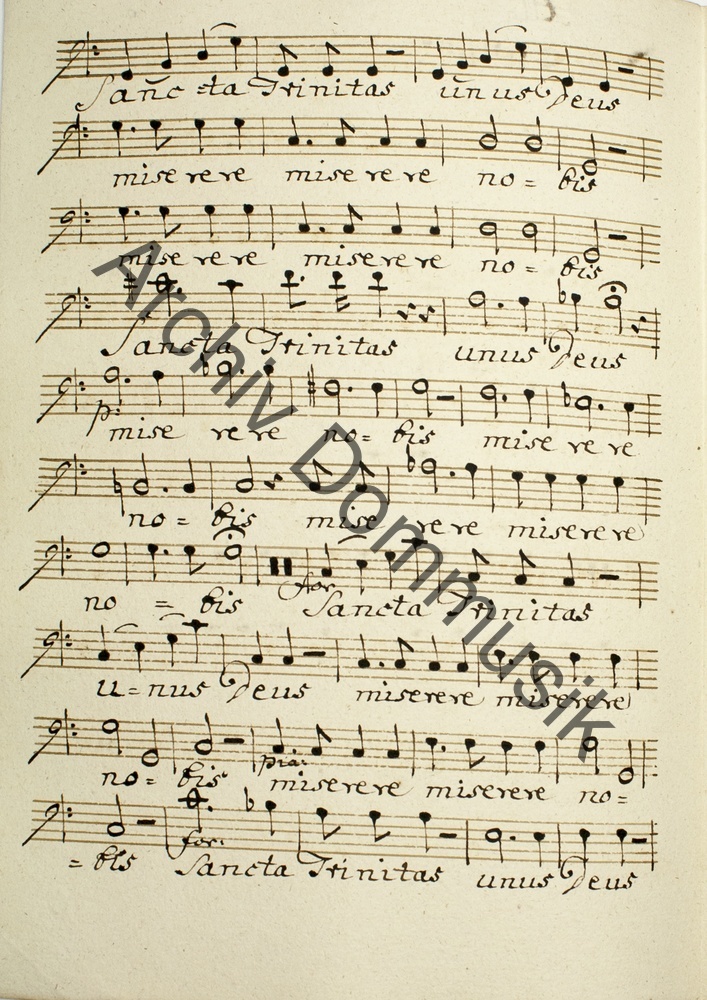 Sanc=ta Trinitas unus Deus
miserere miserere no= bis
miserere miserere no= bis
Sancta Trinitas unus Deus
p:
mise rere no= bis mise rere
no= bis mise rere miserere
no = bis Sancta Trinitas
for
u=nus Deus miserere miserere
pia:
no= bis miserere miserere no=
for:
=bis Sancta Trinitas unus Deus
Archiv Dommusik